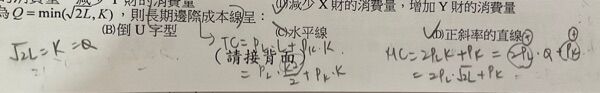 減少 Y 財的消費量
減少 X 財的消費量，增加 Y 財的消費量
為 Q = min(√2L, K)，則長期邊際成本線呈：
(B)倒 U 字型
(C)水平線
(D)正斜率的直線
(請接背面)
√2L = K = Q
TC = PL·L + PK·K
= PL·K²/2 + PK·K
MC = 2PLK + PK = 2PL·Q + PK
= 2PL·√2L + PK